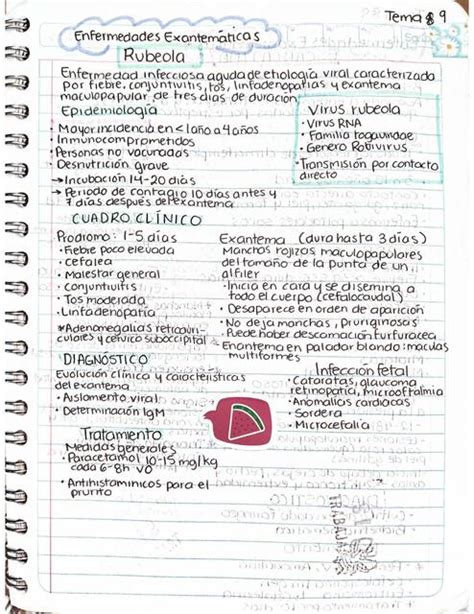 Tema 8 9
Enfermedades Exantemáticas
Rubeola
Enfermedad infecciosa aguda de etiología viral caracterizado
por fiebre, conjuntivitis, tos, linfadenopatías y exantema
maculopapular de tres días de duración
Epidemiología
• Mayor incidencia en <1 año a 4 años
• Inmunocomprometidos
• Personas no vacunadas
• Desnutrición grave
→ Incubación 14-20 días
→ Periodo de contagio 10 días antes y
7 días después del exantema
Virus rubeola
• Virus RNA
• Familia togaviridae
• Genero Rubivirus
• Transmisión por contacto
directo
CUADRO CLÍNICO
Prodromo: 1-5 días
• Fiebre poco elevada
• Cefalea
• Malestar general
• Conjuntivitis
• Tos moderada
• Linfadenopatía
*Adenomegalias retroauri-
culares y cervico suboccipital
Exantema (dura hasta 3 días)
Manchas rojizas maculopapulares
del tamaño de la punta de un
alfiler
• Inicia en cara y se disemina a
todo el cuerpo (cefalocaudal)
• Desaparece en orden de aparición
• No deja manchas, pruriginosas
• Puede haber descamación furfuracea
Enantema en paladar blando: maculas
multiformes
DIAGNÓSTICO
Evolución clínica y características
del exantema
• Aislamiento viral
• Determinación IgM
Infección fetal
• Cataratas, glaucoma
retinopatía, microoftalmia
• Anomalías cardiacas
• Sordera
• Microcefalia
Tratamiento
Medidas generales
• Paracetamol 10-15 mg/kg
cada 6-8h VO
• Antihistamínicos para el
prurito